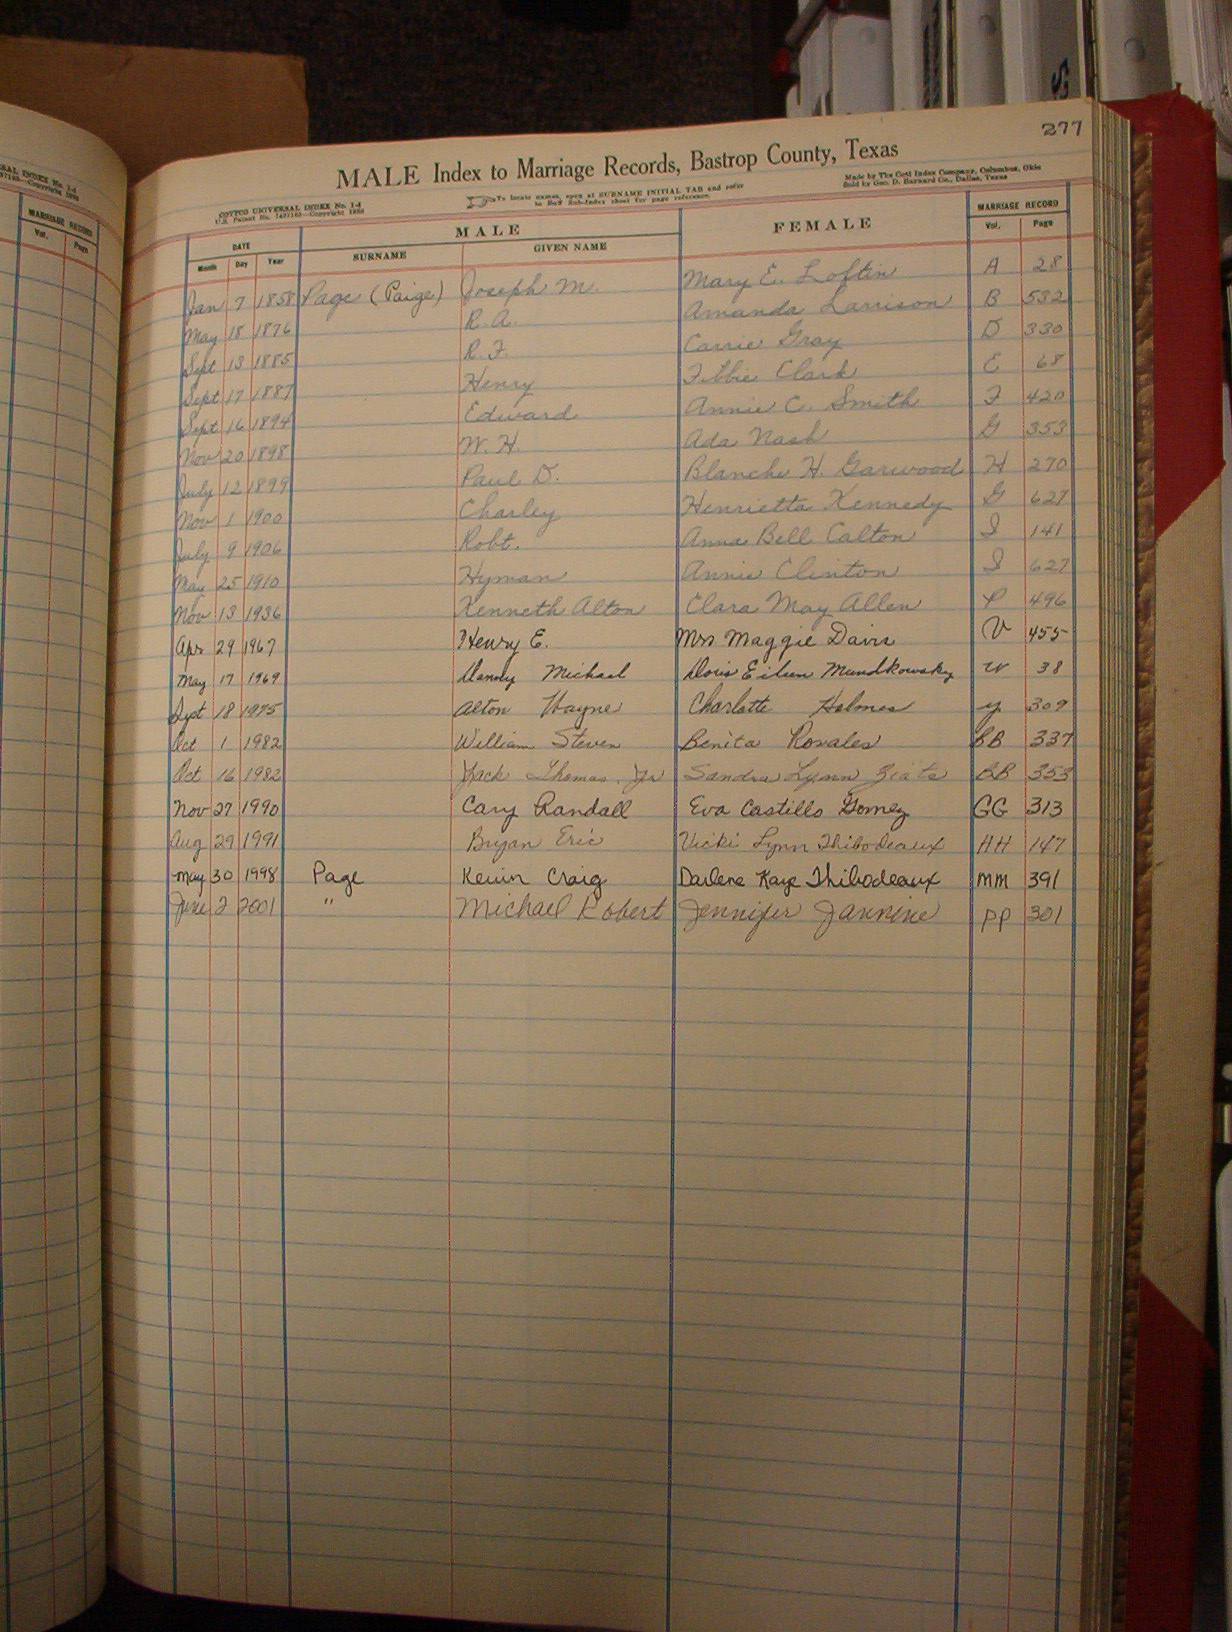 RAL INDEX No. 1-4
MARRIAGE RECORD
Vol. Page
277
MALE Index to Marriage Records, Bastrop County, Texas
COTTCO UNIVERSAL INDEX No. 1-4
U.S. Patent No. —Copyright
To locate names, open at SURNAME INITIAL TAB and refer
to Buff Sub-Index sheet for page reference.
Made by The Cott Index Company, Columbus, Ohio
Sold by Geo. D. Barnard Co., Dallas, Texas
DATE MALE FEMALE MARRIAGE RECORD
Month Day Year SURNAME GIVEN NAME Vol. Page
Jan 7 1858 Page (Paige) Joseph M. Mary E. Loftin A 28
May 18 1876 R. A. Amanda Larrison B 532
Sept 13 1885 R. F. Carrie Gray D 330
Sept 17 1887 Henry Tibbie Clark E 68
Sept 16 1894 Edward Annie C. Smith F 420
Nov 20 1898 W. H. Ada Nash G 353
July 12 1899 Paul D. Blanche H. Garwood H 270
Nov 1 1900 Charley Henrietta Kennedy G 627
July 9 1906 Robt. Anna Bell Calton I 141
May 25 1910 Hyman Annie Clinton I 627
Nov 13 1936 Kenneth Alton Clara May Allen P 496
Apr 29 1967 Henry E. Mrs. Maggie Davis V 455
May 17 1969 Danny Michael Doris Eileen Mundkowsky W 38
Sept 18 1975 Alton Wayne Charlotte Holmes Y 309
Oct 1 1982 William Steven Benita Rosales BB 337
Oct 16 1982 Jack Thomas, Jr Sandra Lynn BB 353
Nov 27 1990 Cary Randall Eva Castillo Gomez GG 313
Aug 29 1991 Bryan Eric Vicki Lynn Thibodeaux HH 147
May 30 1998 Page Kevin Craig Darlene Kaye Thibodeaux MM 391
June 2 2001 " Michael Robert Jennifer Jannine PP 301